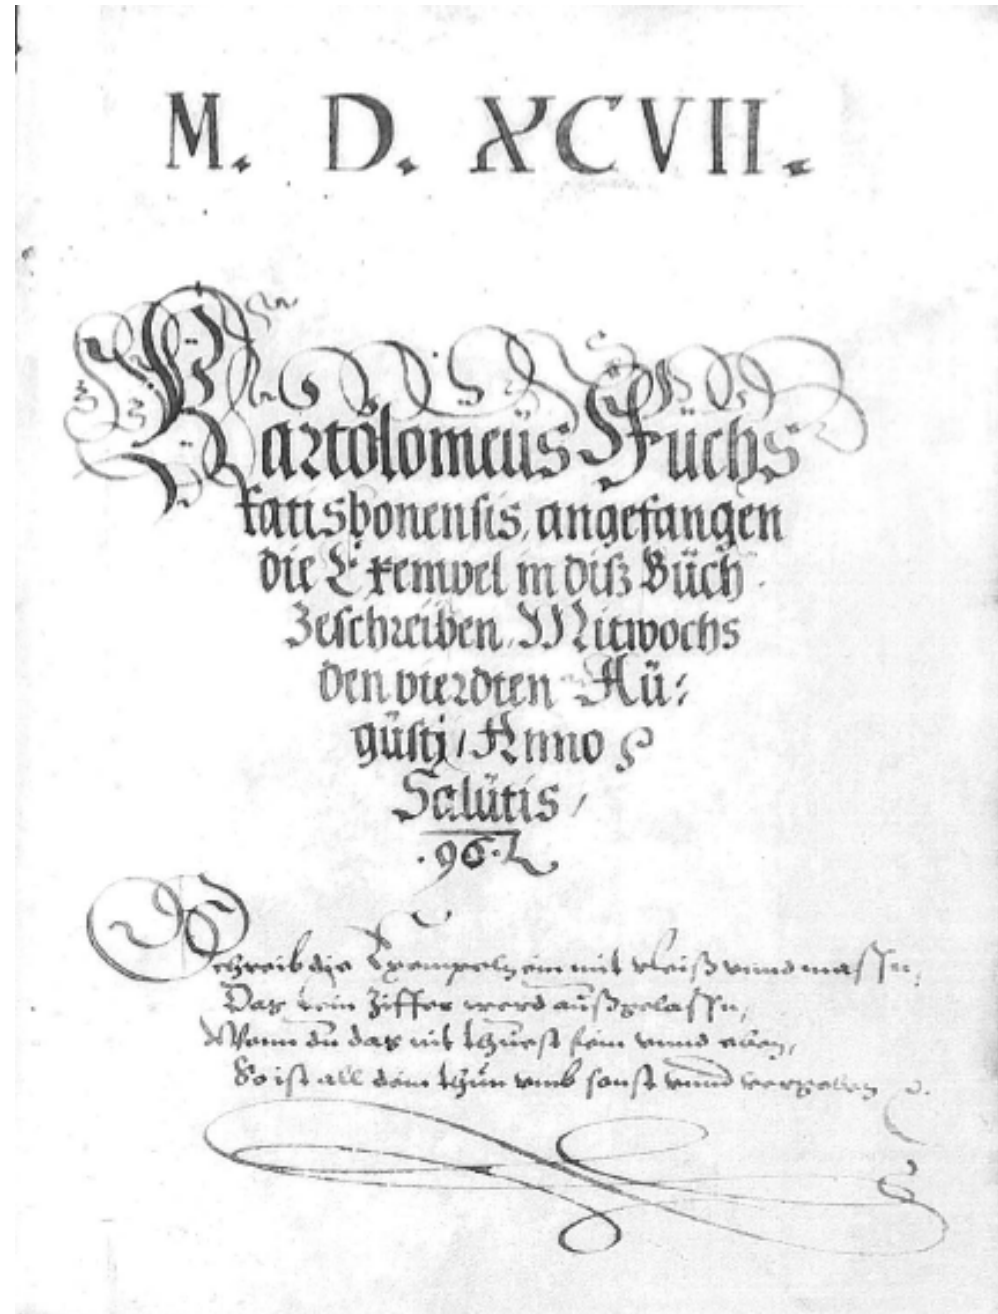 M. D. XCVII.
Bartolomeüs Füchs
Ratisbonensis, angefangen
die Exempel in diß Büch
Zeschreiben, Mitwochs
den vierdten Aü:
güstj, Anno
Salütis,
.96.
Schreib die Exempel ein mit vleiß vnnd massn,
Das kein Ziffer werd außgelassn,
Wann dü das nit thüest fein vnnd eben,
So ist all dein thün vmb sonst vnnd vergeben